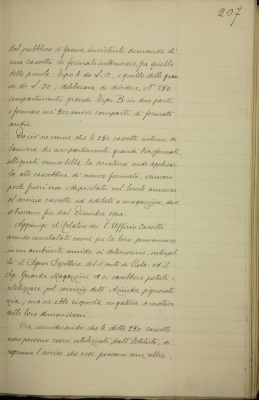 207
dal pubblico si faceva insistente domanda di
una cassetta di formato intermedio, fra quello
delle piccole, Tipo A da L. 12, e quello delle gran
di da L. 30, deliberava di dividere, N° 280
compartimenti grandi Tipo B in due parti
e formare così 500 nuovi comparti di formato
medio.
Da ciò ne venne che le 280 cassette interne di
lamiera dei compartimenti grandi trasformati,
alle quali venne tolta la serratura onde applicar
la alle cassettine di nuovo formato, vennero
poste fuori uso e depositate nel locale annesso
al servizio cassette ed adibito a magazzino, dove
si trovano fin dal Dicembre
Aggiunge il Relatore che l'Ufficio Cassette
avendo constatato come per la loro permanenza
in un ambiente umido si deteriorino, interpel
lò il Signor Direttore del Monte di Pietà ed il
Sig. Guarda Magazzini se si sarebbero potute
utilizzare pel servizio dell'Azienda pignorati
zia; ma ne ebbe risposta negativa a motivo
delle loro dimensioni.
Ora considerando che le dette 280 cassette
non possono essere utilizzate dall'Istituto, si
espresse l'avviso che esse possano